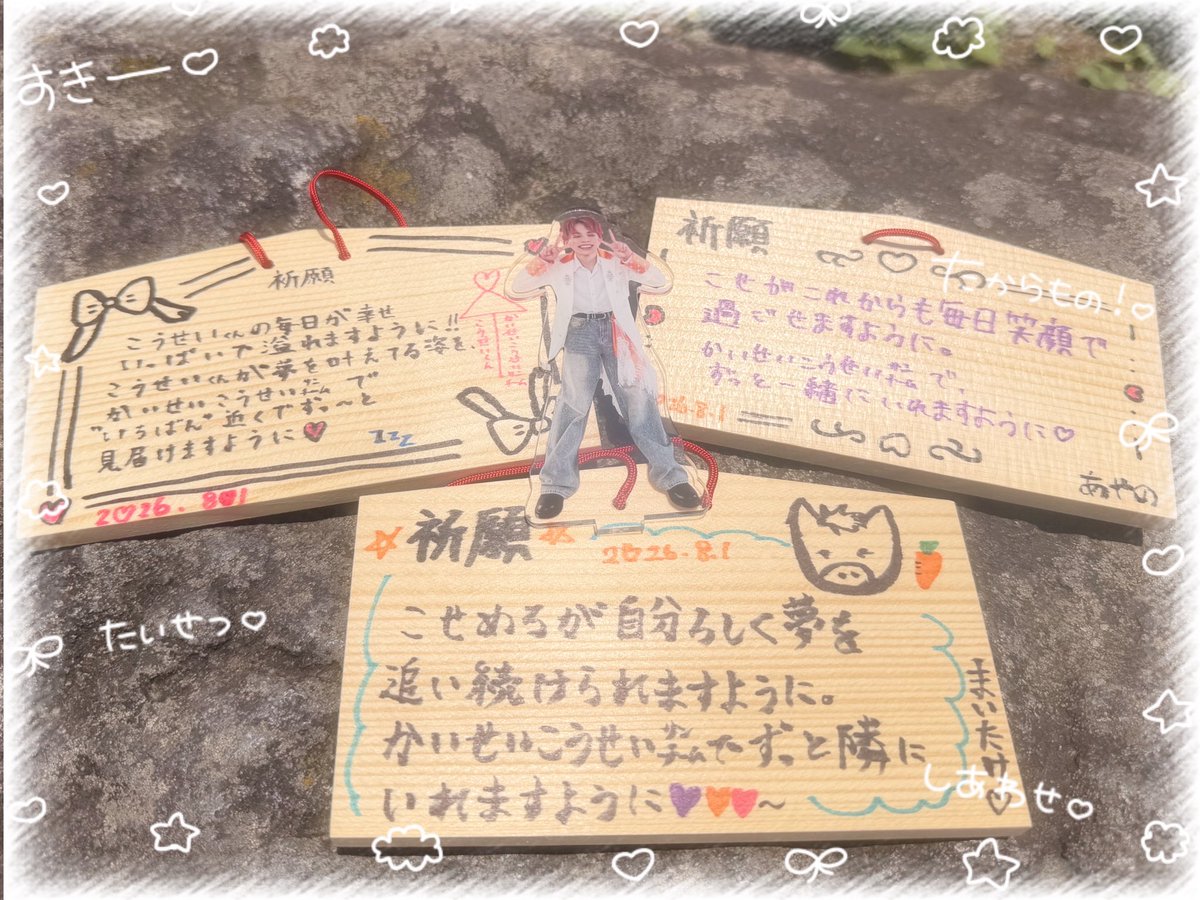 すきー♡
祈願
こうせいくんの毎日が幸せ
いっぱいで溢れますように!!
こうせいくんが夢を叶えてる姿を、
かいせいこうせいチームで
"いちばん"近くでずーっと
見届けますように
zzz
2026.8.1
祈願
たからもの!♡
こせがこれからも毎日笑顔で
過ごせますように。
かいせいこうせいチームで、
ずっと一緒にいれますように♡
2026.8.1
あやの
祈願
2026.8.1
こせめろが自分らしく夢を
追い続けられますように。
かいせいこうせいチームでずっと隣に
いれますように
まいたけ♡
たいせつ♡
しあわせ♡